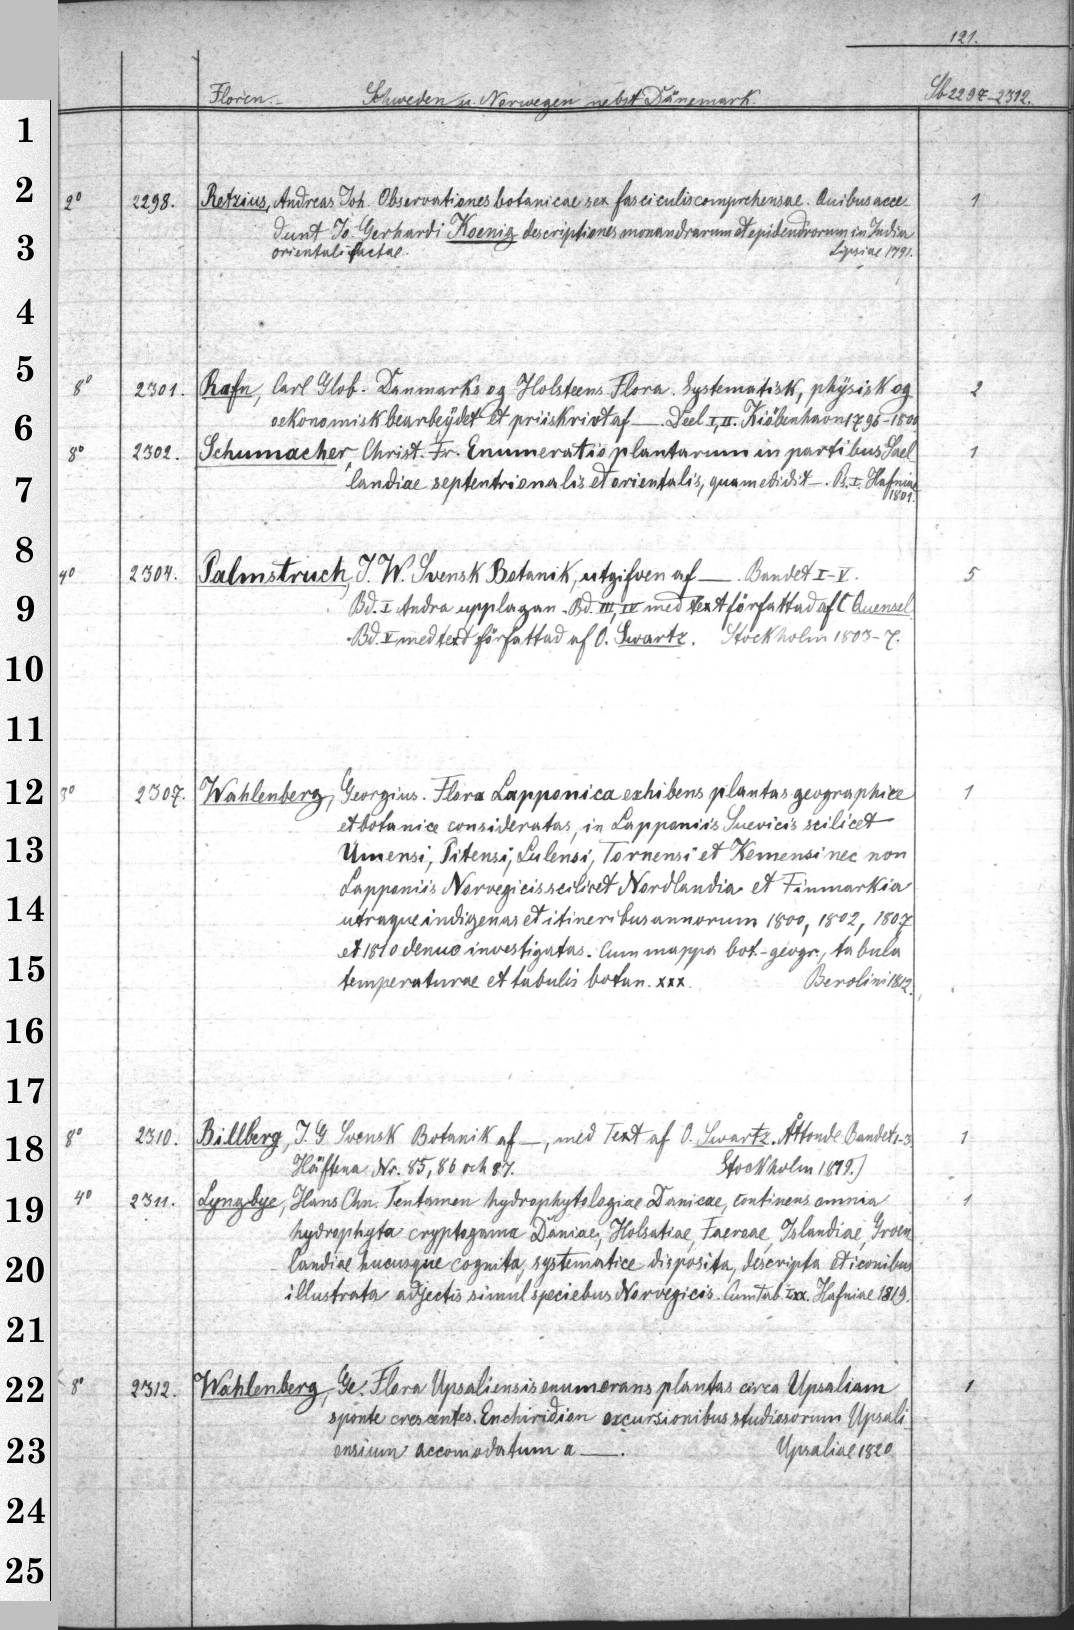 121.
Floren. Schweden u. Norwegen nebst Dänemark. Sb 2297-2312.
2° 2298. Retzius, Andreas Joh. Observationes botanicae sex fasciculis comprehensae. Quibus acce 1
dunt Jo. Gerhardi Koenig descriptiones monandrarum et epidendrorum in India
orientali factae. Lipsiae 1791.
8° 2301. Rafn, Carl Glob. Danmarks og Holsteens Flora. Systematisk, physisk og 2
oekonomisk bearbeydet et priiskrivt af —. Deel I, II. Kiöbenhavn 1796-1800
8° 2302. Schumacher, Christ. Fr. Enumeratio plantarum in partibus Sael 1
landiae septentrionalis et orientalis, quam edidit —. B. I. Hafniae
1801.
4° 2304. Palmstruch, J. W. Svensk Botanik, utgifven af —. Bandet I-V. 5
Bd. I Andra upplagan. Bd. III, IV med text författad af C Quensel
Bd. V med text författad af O. Swartz. Stockholm 1803-7.
8° 2307. Wahlenberg, Georgius. Flora Lapponica exhibens plantas geographice 1
et botanice consideratas, in Lapponiis Suevicis scilicet
Umensi, Pitensi, Lulensi, Tornensi et Kemensi nec non
Lapponiis Norvegicis scilicet Nordlandia et Finmarkia
utraque indigenas et itineribus annorum 1800, 1802, 1807
et 1810 denuo investigatas. Cum mappa bot.-geogr., tabula
temperaturae et tabulis botan. xxx. Berolini 1812.
8° 2310. Billberg, J. G Svensk Botanik af —, med Text af O. Swartz. Åttonde Bandet 1-3 1
Häftena Nr. 85, 86 och 87. Stockholm 1819.)
4° 2311. Lyngbye, Hans Chn. Tentamen hydrophytologiae Danicae, continens omnia 1
hydrophyta cryptogama Daniae, Holsatiae, Faeroae, Islandiae, Groen
landiae hucusque cognita, systematice disposita, descripta et iconibus
illustrata adjectis simul speciebus Norvegicis. Cum tab. Lxx. Hafniae 1819.
8° 2312. Wahlenberg, Ge. Flora Upsaliensis enumerans plantas circa Upsaliam 1
sponte crescentes. Enchiridion excursionibus studiosorum Upsali
ensium accomodatum a —. Upsaliae 1820
1
2
3
4
5
6
7
8
9
10
11
12
13
14
15
16
17
18
19
20
21
22
23
24
25